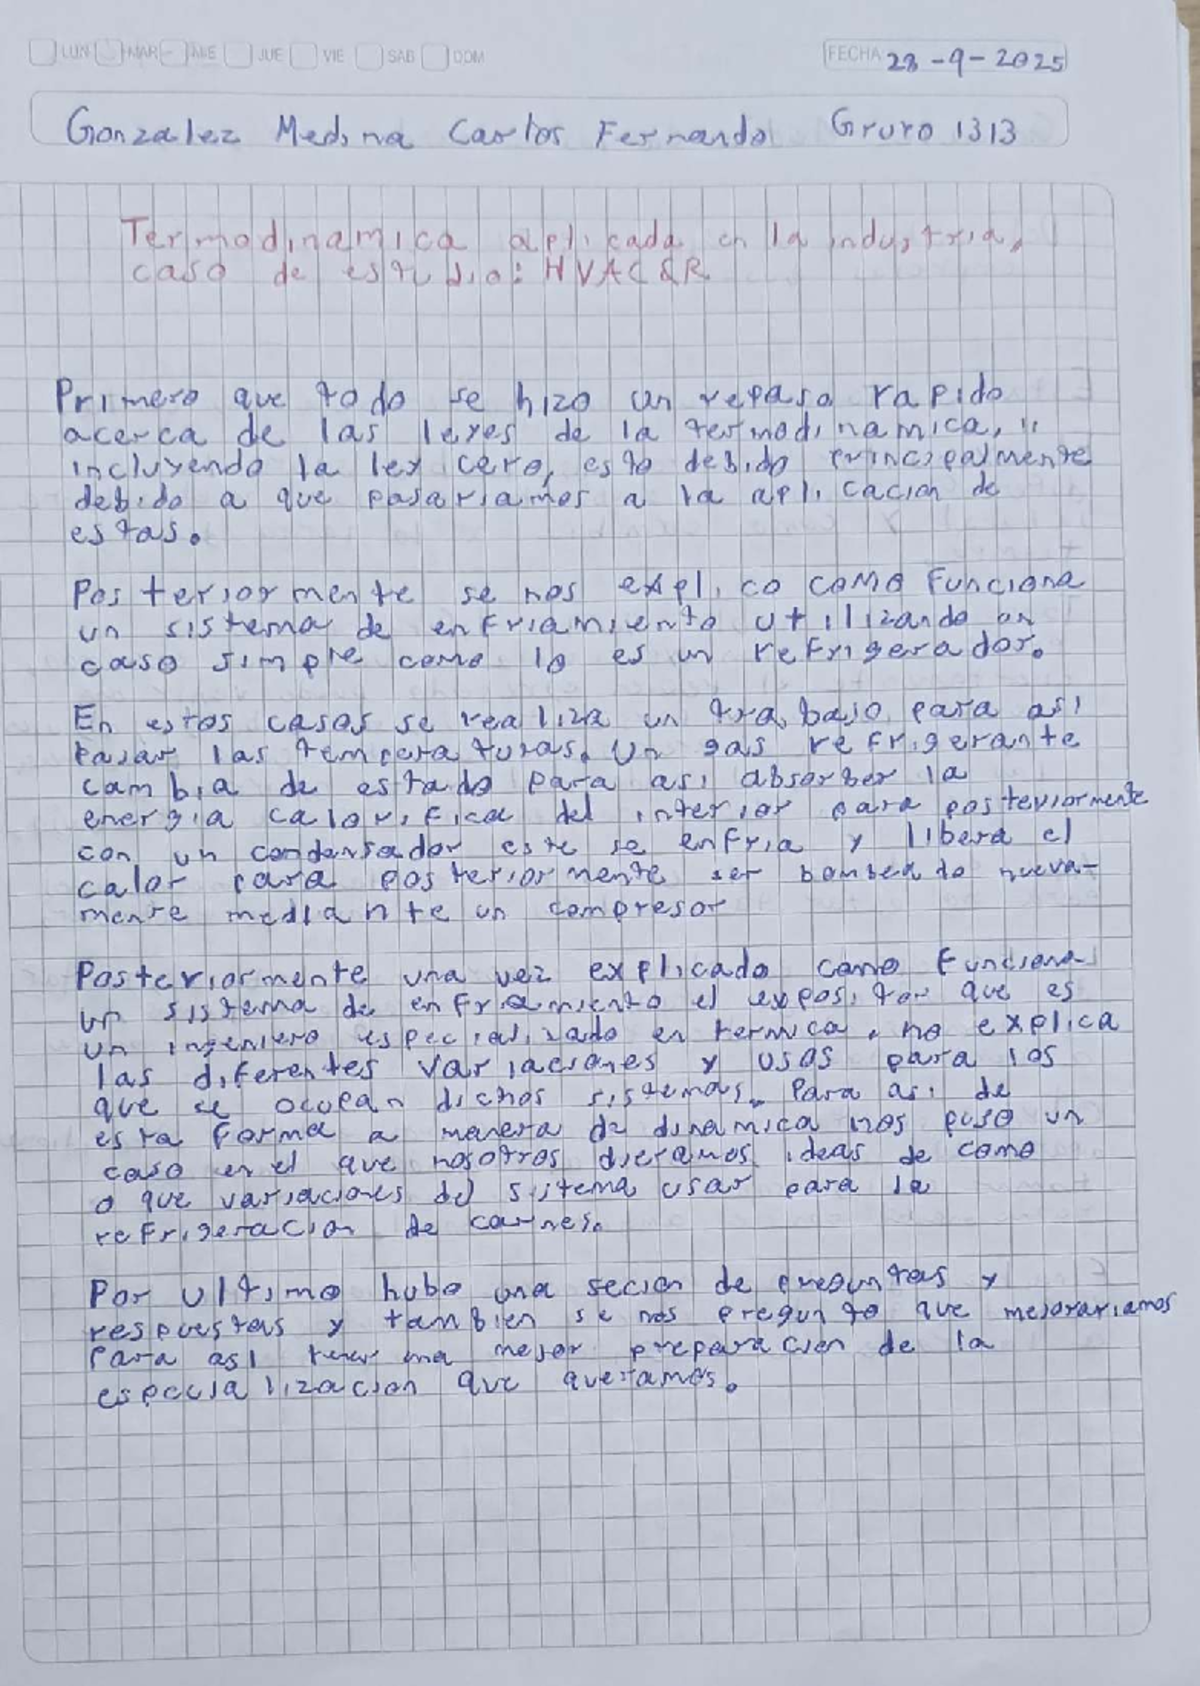 LUN MAR MIE JUE VIE SAB DOM
FECHA 28-9-2025
Gonzalez Medina Carlos Fernando Grupo 1313
Termodinamica aplicada en la industria,
caso de estudio: HVAC&R
Primero que todo se hizo un repaso rapido
acerca de las leyes de la termodinamica,
incluyendo la ley cero, esto debido principalmente
debido a que pasariamos a la aplicacion de
estas.
Posteriormente se nos explico como funciona
un sistema de enfriamiento utilizando un
caso simple como lo es un refrigerador.
En estos casos se realiza un trabajo para asi
bajar las temperaturas. Un gas refrigerante
cambia de estado para asi absorber la
energia calorifica del interior para posteriormente
con un condensador este se enfria y libera el
calor para posteriormente ser bombeado nueva-
mente mediante un compresor
Posteriormente una vez explicado como funciona
un sistema de enfriamiento el expositor que es
un ingeniero especializado en termica, no explica
las diferentes variaciones y usos para los
que se ocupan dichos sistemas. Para asi de
esta forma a manera de dinamica nos puso un
caso en el que nosotros dieramos ideas de como
o que variaciones del sistema usar para la
refrigeracion de carnes.
Por ultimo hubo una secion de preguntas y
respuestas y tambien se nos pregunto que mejorariamos
para asi tener una mejor preparacion de la
especializacion que queramos.